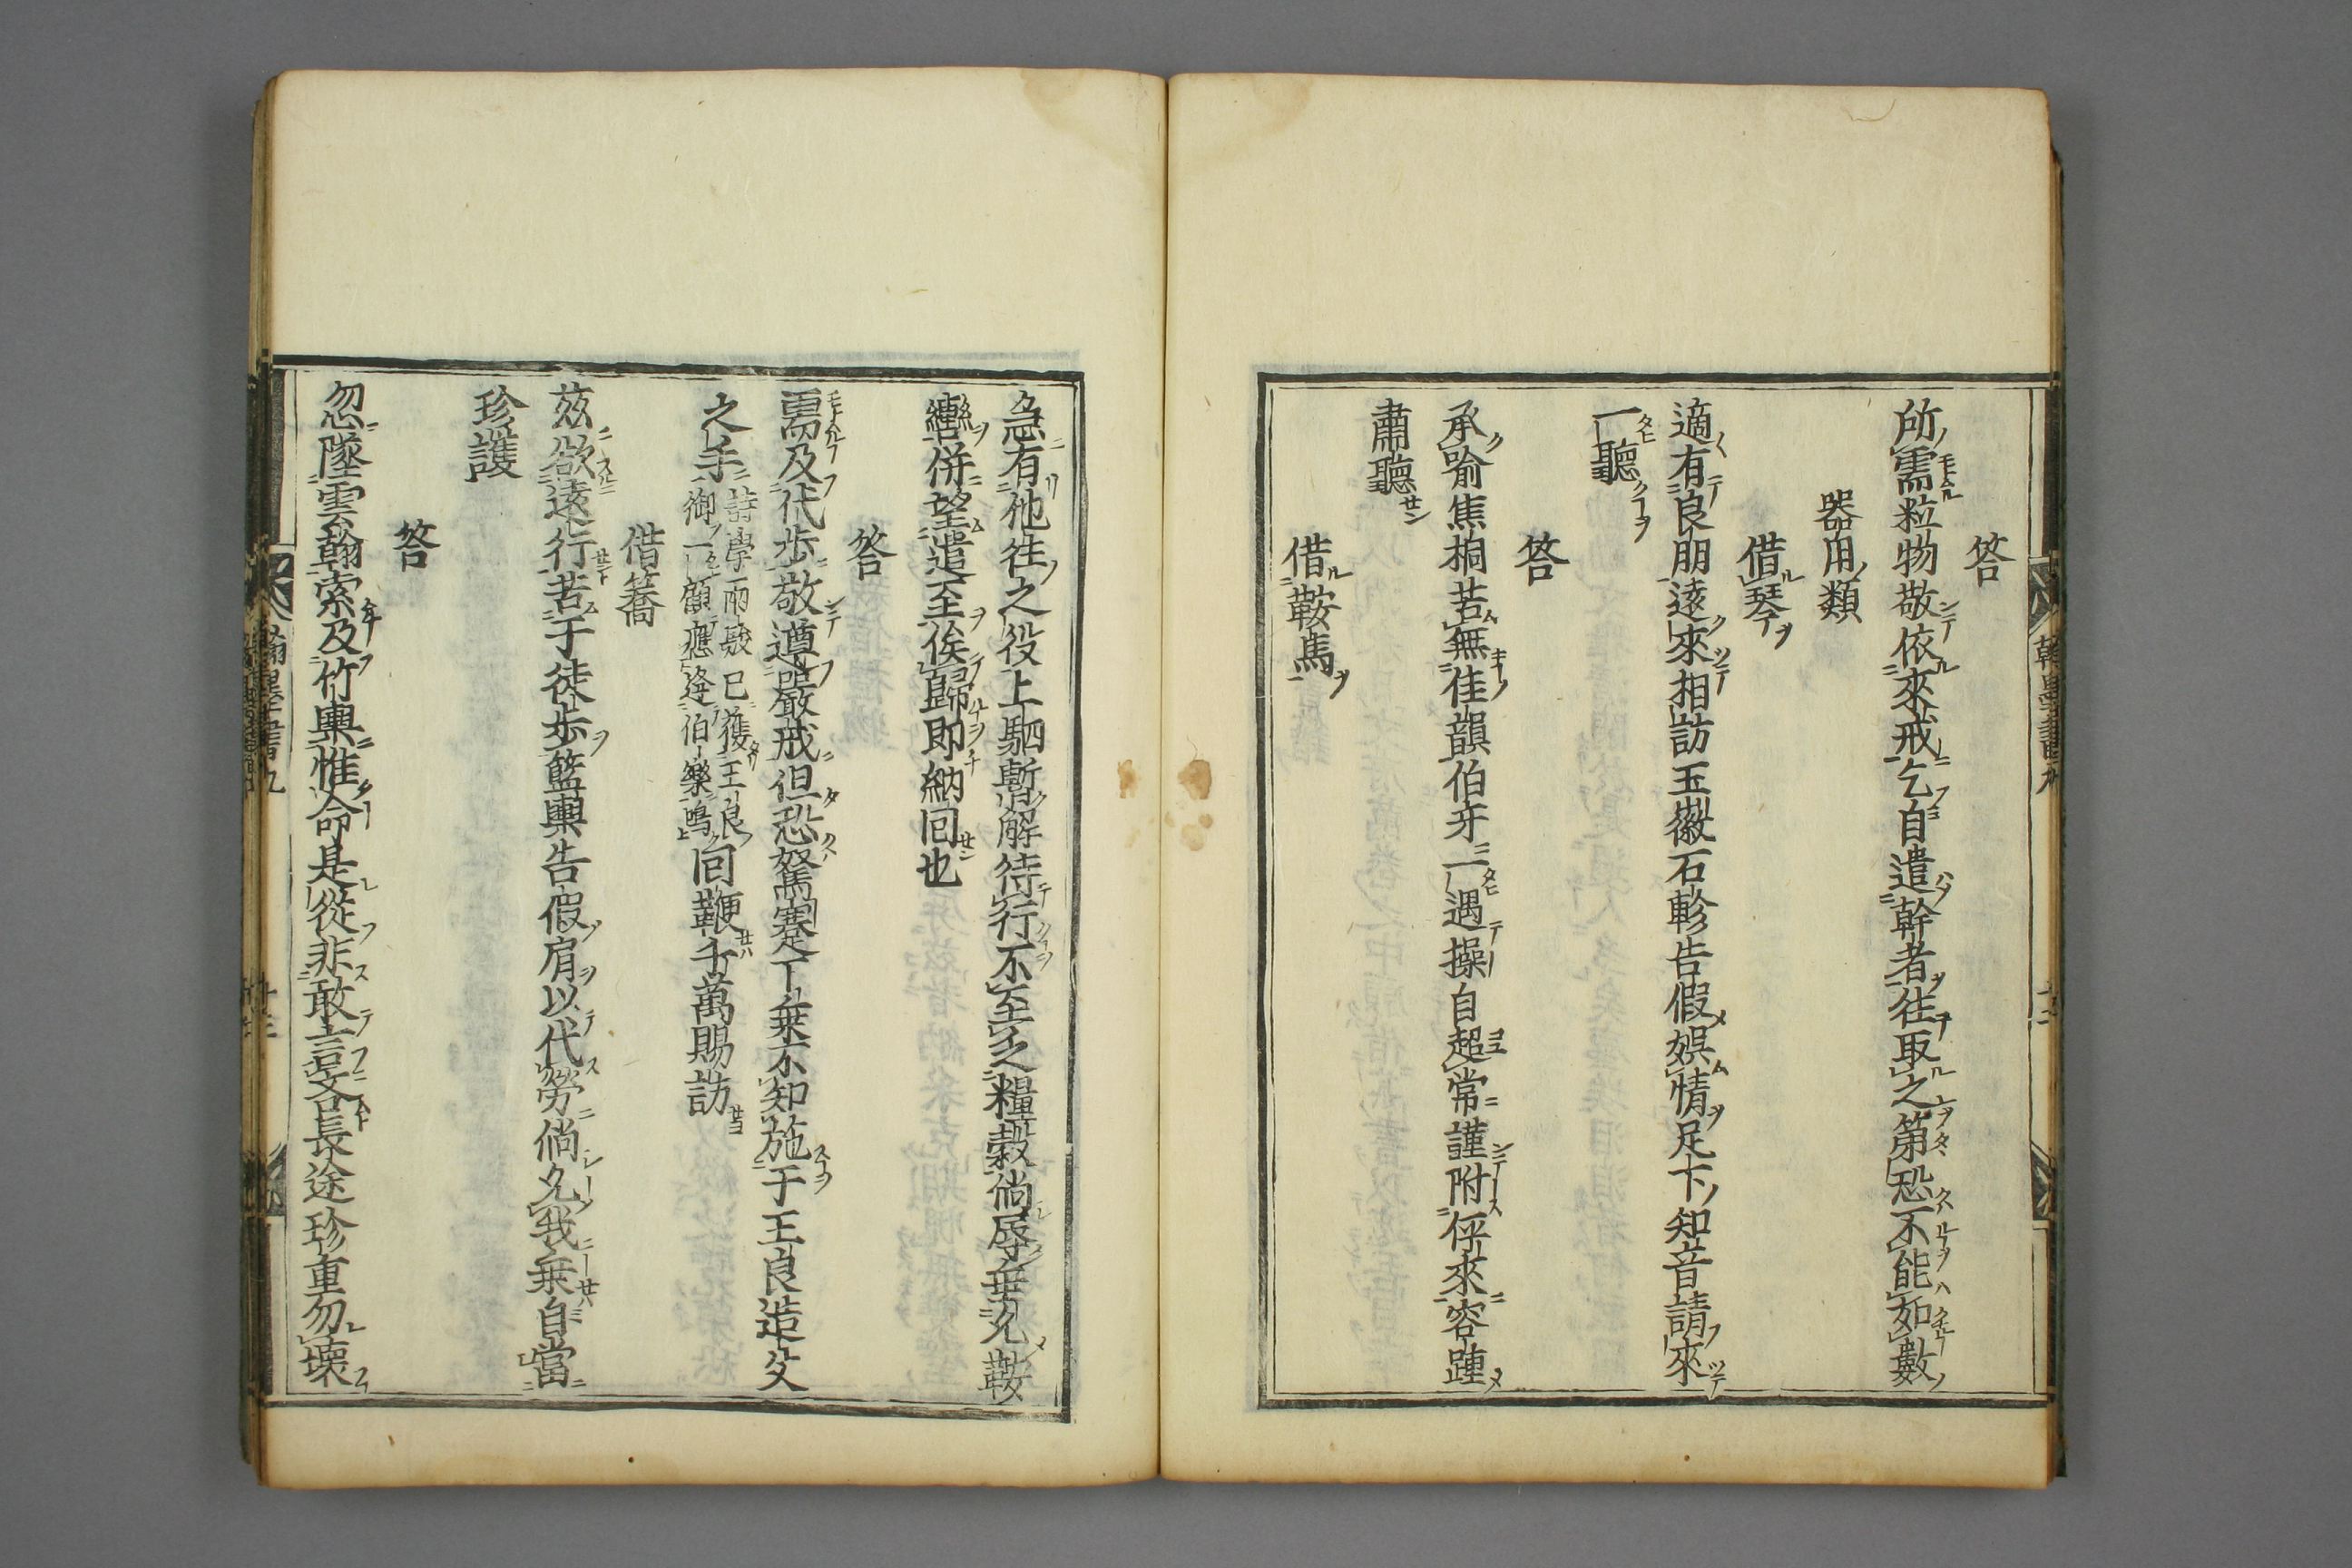 答
所需粒物敬依來戒乞自遣幹者往取之第恐不能如數
器用類
借琴
適有良朋遠來相訪玉徽石軫告假娯情足下知音請來
一聽
答
承喻焦桐苦無佳韻伯牙一遇操自超常謹附伻來容踵
肅聽
借鞍馬
急有他往之役上駟暫解待行不至乏糧穀倘辱垂允鞍
轡併望遣至俟歸即納回也
答
需及代步敬遵嚴戒但恐駑蹇下乗不知施于王良造父
之手
詩學兩驂已獲王良
御一顧應逢伯樂鳴
回鞭千萬賜訪
借籌
茲欲遠行苦于徒步籃輿告假肩以代勞倘允我乗自當
珍護
答
忽墜雲翰索及竹輿惟命是從非敢言吝長途珍重勿壊
翰墨書九